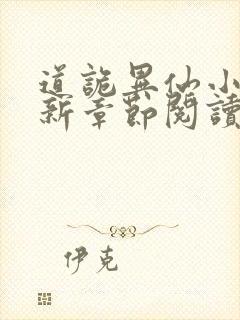 道詭異仙小
新章節閱讀
伊克